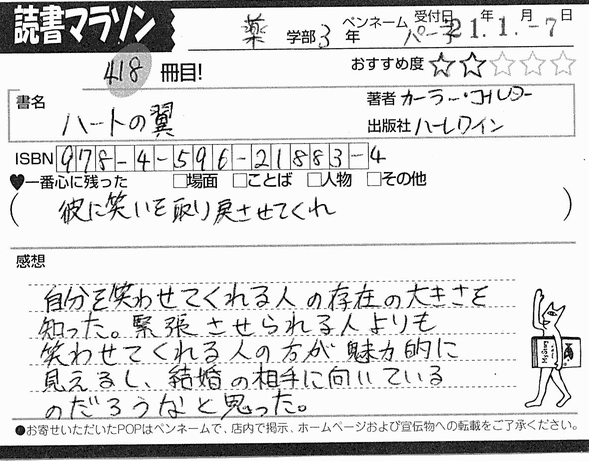 読書マラソン 薬 学部 3 年 ペンネーム パー子 受付日 21. 年 1. 月 -7 日
418 冊目! おすすめ度 ★★☆☆☆
書名 ハートの翼 著者 カーラー・コールター
出版社 ハーレクイン
ISBN 978-4-596-21883-4
♥一番心に残った □場面 □ことば □人物 □その他
(彼に笑いを取り戻させてくれ)
感想
自分を笑わせてくれる人の存在の大きさを
知った。緊張させられる人よりも
笑わせてくれる人の方が魅力的に
見えるし、結婚の相手に向いている
のだろうなと思った。
●お寄せいただいたPOPはペンネームで、店内で掲示、ホームページおよび宣伝物への転載をご了承ください。